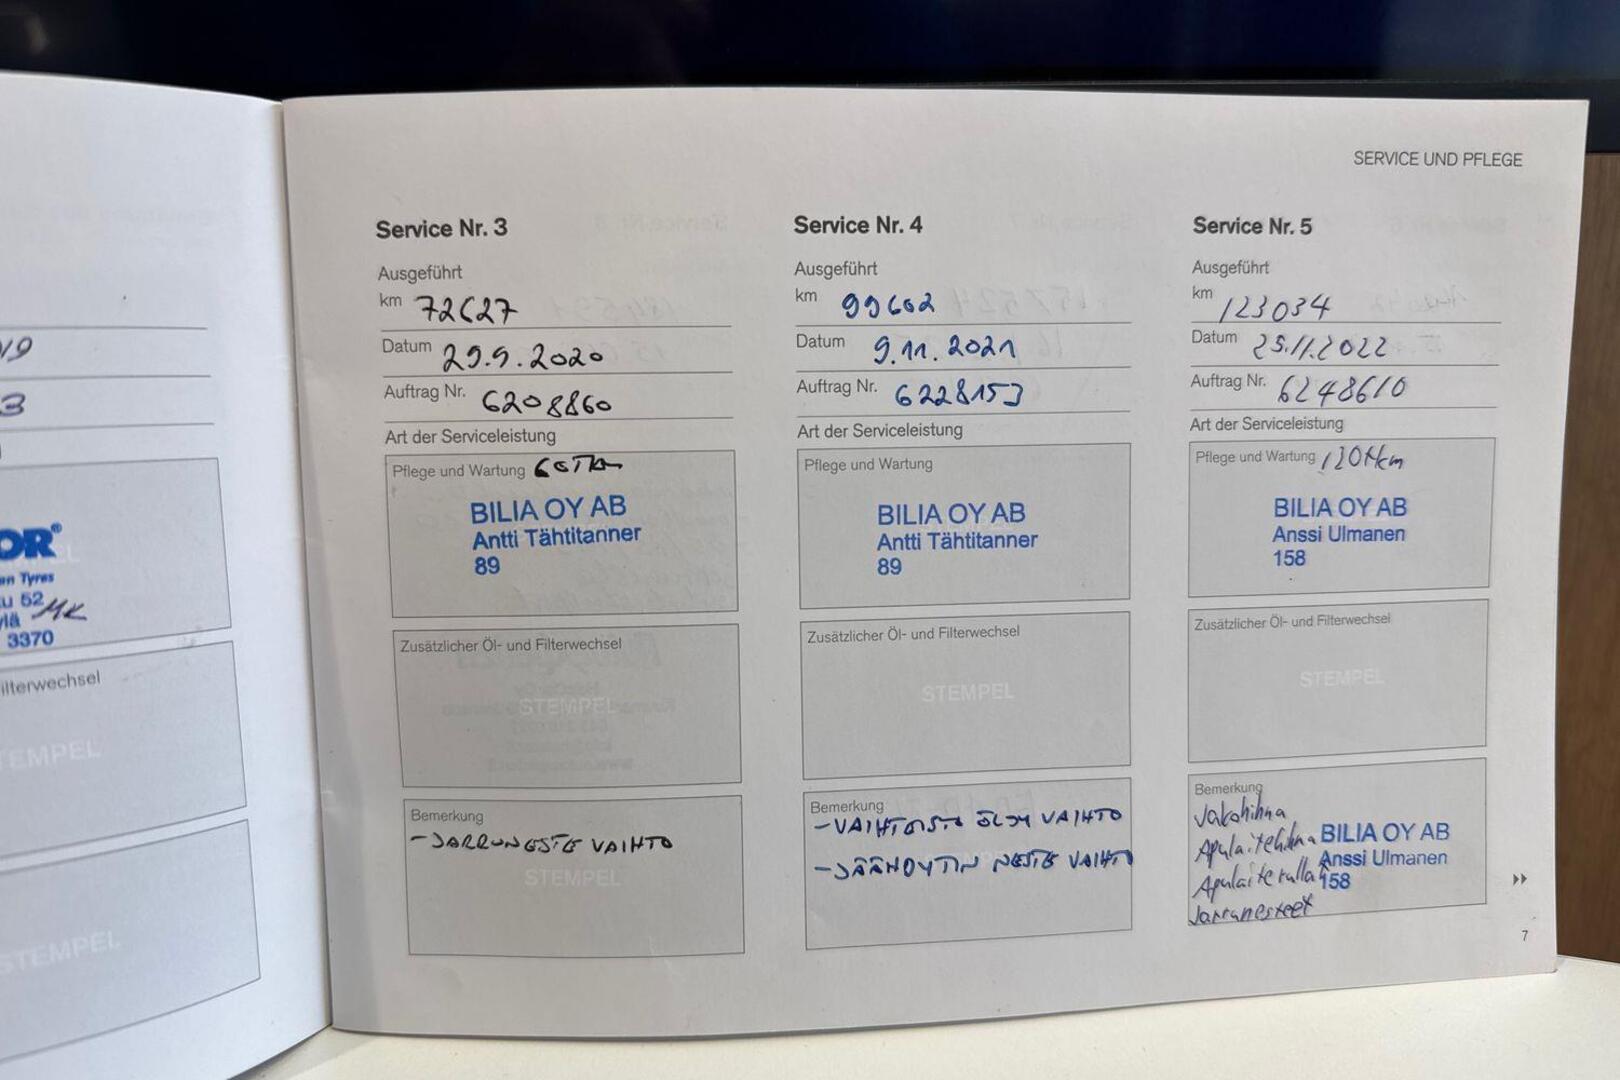 19
3
OR®
an Tyres
u 52
MK
3370
ilterwechsel
TEMPEL
STEMPEL
SERVICE UND PFLEGE
Service Nr. 3
Ausgeführt
km 72627
Datum 29.9.2020
Auftrag Nr. 6208860
Art der Serviceleistung
Pflege und Wartung
BILIA OY AB
Antti Tähtitanner
89
Zusätzlicher Öl- und Filterwechsel
STEMPEL
Bemerkung
-JARRUNESTE VAIHTO
STEMPEL
Service Nr. 4
Ausgeführt
km 99602
Datum 9.11.2021
Auftrag Nr. 6228153
Art der Serviceleistung
Pflege und Wartung
BILIA OY AB
Antti Tähtitanner
89
Zusätzlicher Öl- und Filterwechsel
STEMPEL
Bemerkung
-VAIHTEISTO ÖLJY VAIHTO
-JÄÄHDYTIN NESTE VAIHTO
Service Nr. 5
Ausgeführt
km 123034
Datum 25.11.2022
Auftrag Nr. 6248610
Art der Serviceleistung
Pflege und Wartung 120tkm
BILIA OY AB
Anssi Ulmanen
158
Zusätzlicher Öl- und Filterwechsel
STEMPEL
Bemerkung
Jakohihna
Apulaitehihna
Apulaiterulla
Jarrunesteet
BILIA OY AB
Anssi Ulmanen
158
7